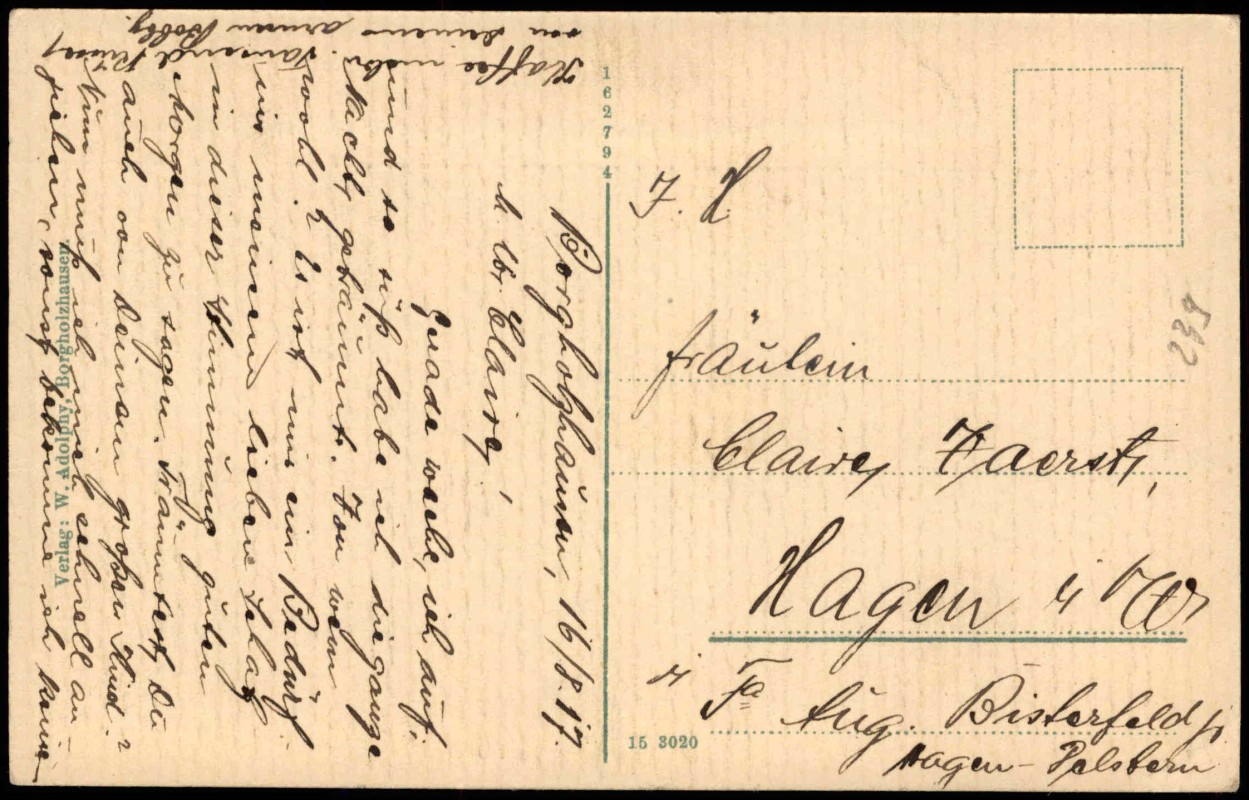 Borgholzhausen, 16/8.17.
M. lb. Claire,
Gerade wache ich auf,
und so süß habe ich die ganze
Nacht geträumt. Von wem
wohl? Es ist mir ein Bedürf
nis meinem lieben Schatz
in dieser Stimmung guten
Morgen zu sagen. Träumtest Du
auch von Deinem großen Kind?
Nun muß ich mich schnell an
ziehen, sonst bekomme ich keine
Kaffee mehr. Tausend Küsse
von Deinem armen Bobby.
Verlag: W. Adolphy, Borgholzhausen
162794
15 3020
F. H
Fräulein
Claire Kaerst,
Hagen i/W
i/ Fa Aug. Bisterfeld jr
Hagen-
239